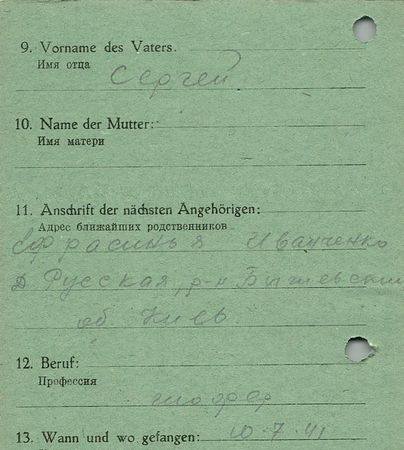 9. Vorname des Vaters.
Имя отца
Сергей
10. Name der Mutter:
Имя матери
11. Anschrift der nächsten Angehörigen:
Адрес ближайших родственников
Ефрасинья Иванченко
д Русская, р-н Бышевский
об. Киев.
12. Beruf:
Профессия
шофер
13. Wann und wo gefangen: 10.7.41